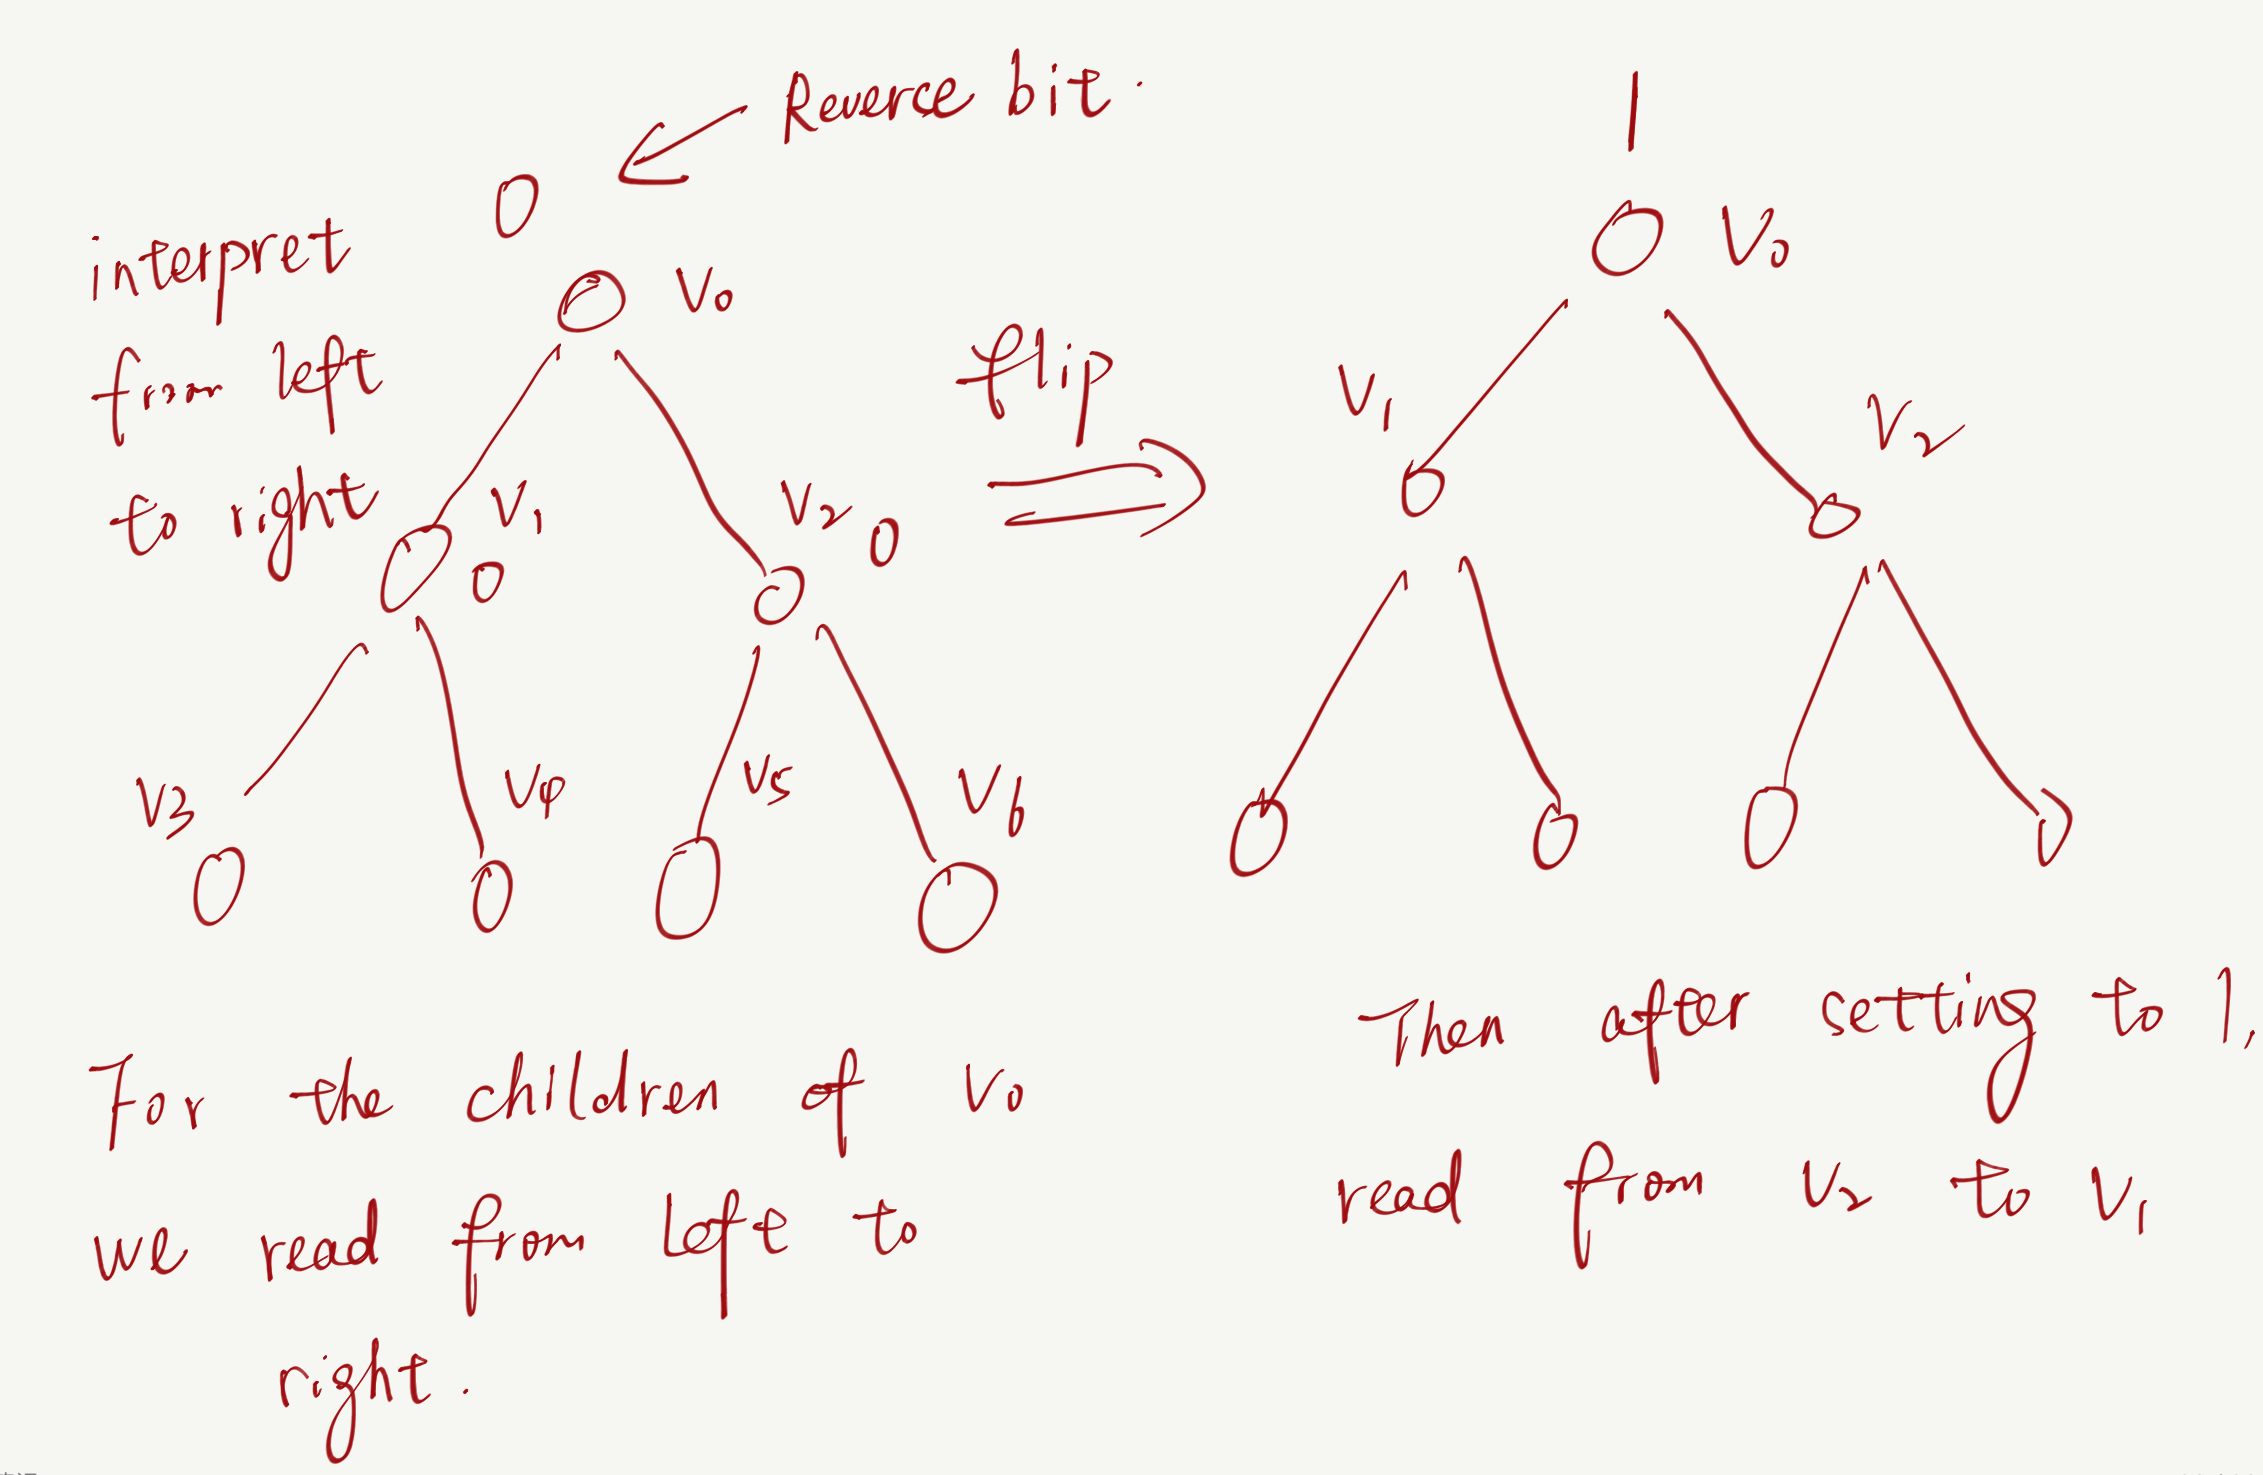 Reverse bit.
0
interpret
from left
to right
V0
V1
0
V2
0
V3
V4
V5
V6
flip
1
V0
V1
V2
For the children of V0
we read from left to
right.
Then after setting to 1,
read from V2 to V1